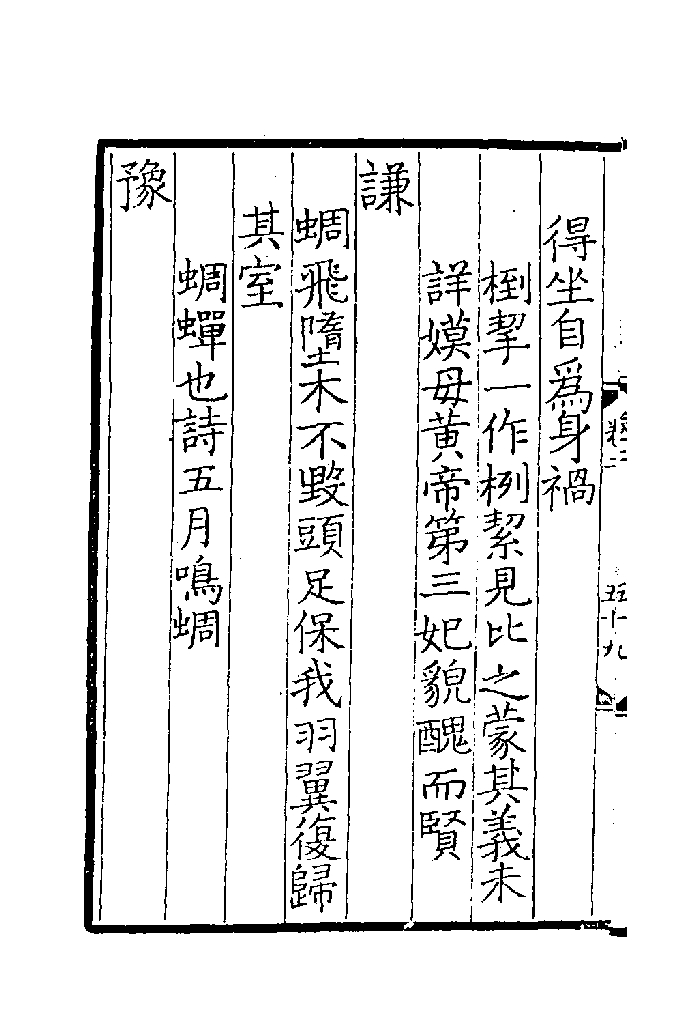 得坐自爲身禍
梪挈一作栵絜見比之蒙其義未
詳嫫毋黄帝第三妃貌醜而賢
謙
蜩飛隋木不毀頭足保我羽翼復歸
其室
蜩蟬也詩五月鳴蜩
豫
五十九